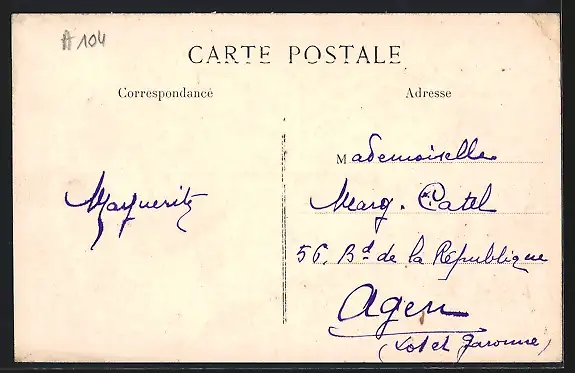 A 104
CARTE POSTALE
Correspondance
Adresse
Marguerite
Mademoiselle
Marg. Catel
56, Bd de la République
Agen
(Lot et Garonne)